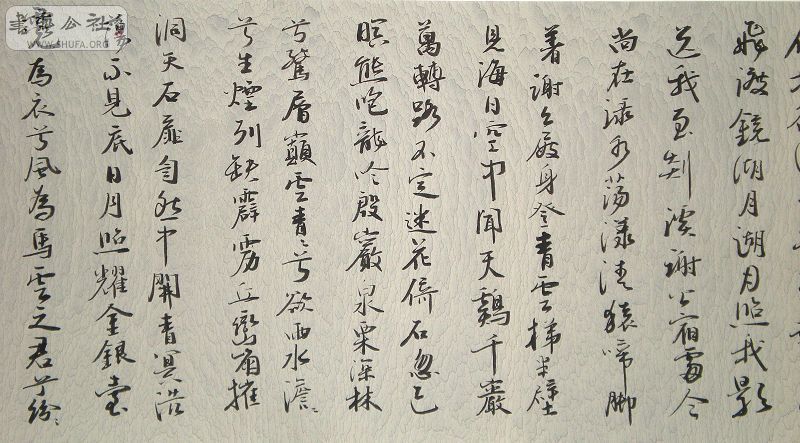 飛渡鏡湖月湖月照我影
送我至剡溪謝公宿處今
尚在淥水蕩漾清猿啼脚
著謝公屐身登青雲梯半壁
見海日空中聞天鷄千巖
萬轉路不定迷花倚石忽已
暝熊咆龍吟殷巖泉栗深林
兮驚層巔雲青〻兮欲雨水澹〻
兮生煙列缺霹靂丘巒崩摧
洞天石扉訇然中開青冥浩
蕩不見底日月照耀金銀臺
霓為衣兮風為馬雲之君兮紛〻
公社
WWW.SHUFA.ORG